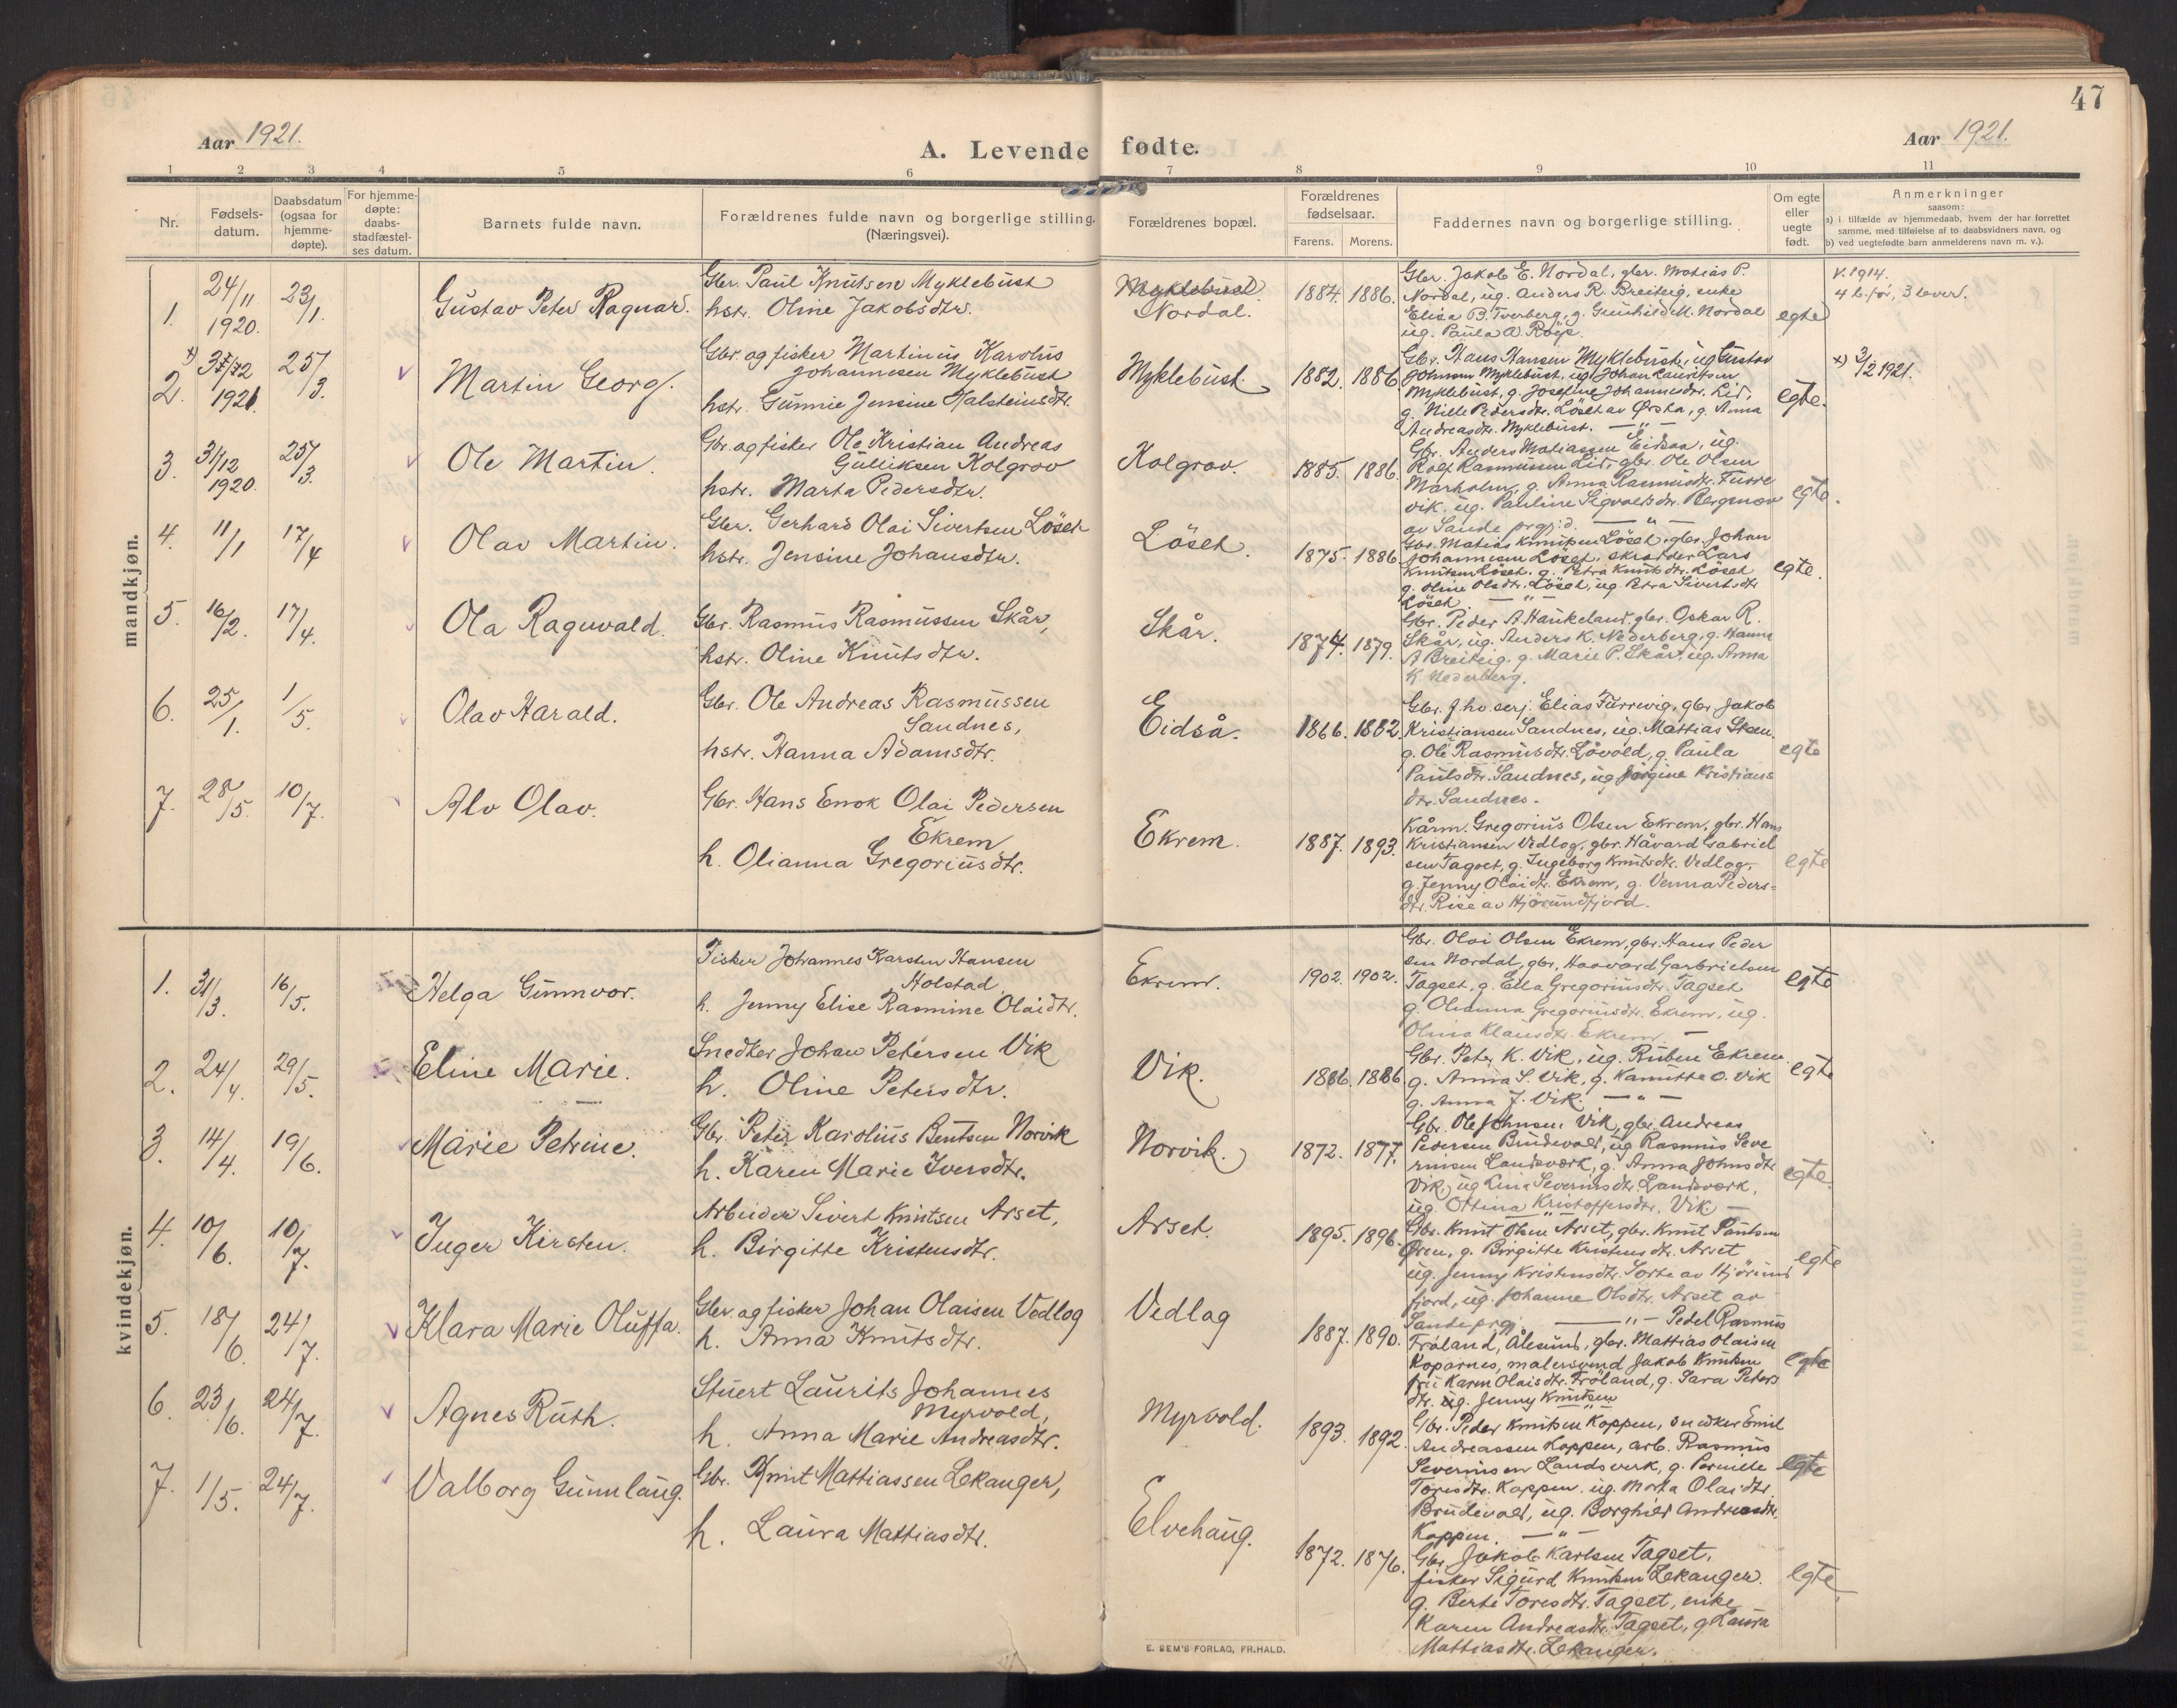 Aar 1921.
A. Levende fødte.
Aar 1921.
47
1 2 3 4 5 6 7 8 9 10 11
Nr.
Fødsels-
datum.
Daabsdatum
(ogsaa for
hjemme-
døpte).
For hjemme-
døpte:
daabs-
stadfæstel-
ses datum.
Barnets fulde navn.
Forældrenes fulde navn og borgerlige stilling.
(Næringsvei).
Forældrenes bopæl.
Forældrenes
fødselsaar.
Farens. Morens.
Faddernes navn og borgerlige stilling.
Om egte
eller
uegte
født.
Anmerkninger
saasom:
a) i tilfælde av hjemmedaab, hvem der har forrettet
samme, med tilføielse av to daabsvidners navn, og
b) ved uegtefødte barn anmelderens navn m. v.).
mandkjøn.
1. 24/11 1920. 23/1. Gustav Peter Ragnar.
Gbr. Paul Knutsen Myklebust
hstr. Oline Jakobsdtr.
Myklebust.
Nordal.
1884. 1886.
Gbr. Jakob E. Nordal, gbr. Matias P.
Nordal, ug. Anders R. Breiteig, enke
Elisa B. Tverberg, g. Gunhild M. Nordal
ug. Paula A. Røys.
egte
V. 1914.
4 b. før, 3 lever.
2. 1921. 25/3. Martin Georg.
Gbr. og fisker Martinus Karolus
Johannesen Myklebust
hstr. Gunnie Jensine Halsteinsdtr.
Myklebust.
1882. 1886
Gbr. Hans Hansen Myklebust, ug Gustav
Johnsen Myklebust, ug. Johan Lauritsen
Myklebust, g. Josefine Johannesdtr. Lid,
g. Nille Pedersdtr. Løset av Ørsta, g. Anna
Andreasdtr. Myklebust. — " —
egte.
x) 3/2 1921.
3. 31/12 1920. 25/3. Ole Martin.
Gbr. og fisker Ole Kristian Andreas
Gulliksen Kolgrov
hstr. Marta Pedersdtr.
Kolgrov.
1885. 1886.
Gbr. Anders Matiassen Eidsaa, ug.
Rolf Rasmussen Lid, gbr. Ole Olsen
Marholm, g. Anna Rasmusdtr. Furre
vik, ug. Pauline Sigvaldsdtr. Bergmov
av Sande prgj.d. — " —
egte.
4. 11/1 17/4 Olav Martin.
Gbr. Gerhard Olai Sivertsen Löset
hstr. Jensine Johansdtr.
Löset.
1875. 1886
Gbr. Matias Knutsen Löset, gbr. Johan
Johannesen Löset, skrædder Lars
Knutsen Löset, g. Petra Knutsdtr. Löset
g. Oline Olsdtr. Löset, ug. Petra Sivertsdtr
Löset — " —
egte.
5. 16/2. 17/4. Ola Ragnvald.
Gbr. Rasmus Rasmussen Skår,
hstr. Oline Knutsdtr.
Skår.
1874. 1879.
Gbr. Peder A Haukeland, gbr. Oskar R.
Skår, ug. Anders K. Nederberg, g. Hanna
A Breiteig. g. Marie P. Skår, ug. Anna
K. Nederberg.
6. 25/1. 1/5. Olav Harald.
Gbr. Ole Andreas Rasmussen
Sandnes,
hstr. Hanna Adamsdtr.
Eidså.
1866. 1882.
Gbr. f.hv. serj. Elias Furrevig, gbr. Jakob
Kristiansen Sandnes, ug. Mattias Steen
g. Ole Rasmusdtr. Løvold, g. Paula
Paulsdtr. Sandnes, ug Jørgine Kristians
dtr. Sandnes.
egte
7. 28/5. 10/7. Alv Olav.
Gbr. Hans Enok Olai Pedersen
Ekrem
h. Olianna Gregoriusdtr.
Ekrem.
1887. 1893.
Kårm. Gregorius Olsen Ekrem, gbr. Hans
Kristiansen Vedlog, gbr. Håvard Gabriel
sen Tagset, g. Ingeborg Knutsdtr. Vedlog,
g. Jenny Olaidtr. Ekrem, g. Venna Peders=
dtr. Rise av Hjørundfjord.
egte
kvindekjøn.
1. 31/3. 16/5. Helga Gunnvor.
Fisker Johannes Karsten Hansen
Holstad
h. Jenny Elise Rasmine Olaidtr.
Ekrem.
1902. 1902.
Gbr. Olai Olsen Ekrem, gbr. Hans Peder
sen Nordal, gbr. Haavard Garbrielsen
Tagset, g. Ella Gregoriusdtr. Tagset
g. Olianna Gregoriusdtr. Ekrem, ug.
Olina Klausdtr. Ekrem. —
egte
2. 24/4. 29/5. Eline Marie.
Snedker Johan Petersen Vik
h. Oline Petersdtr.
Vik.
1886. 1886.
Gbr. Peter K. Vik, ug. Ruben Ekrem.
g. Anna S. Vik, g. Kanutte O. Vik
g. Anna J. Vik. — " —
egte
3. 14/4. 19/6. Marie Petrine.
Gbr. Peter Karolius Bentsen Norvik
h. Karen Marie Iversdtr.
Norvik.
1872. 1877.
Gbr. Ole Johnsen Vik, gbr. Andreas
Pedersen Brudevold, ug Rasmus Seve
rinsen Landsverk, g. Anna Johnsdtr
Vik, ug Lina Severinsdtr. Landsverk,
ug. Ottina Kristoffersdtr. Vik —
egte.
4. 10/6. 10/7. Inger Kirsten.
Arbeider Sivert Knutsen Arset,
h. Birgitte Kristensdtr.
Arset.
1895. 1896.
Gbr. Knut Olsen Arset, gbr. Knut Paulsen
Øren, g. Birgitte Kristensdtr. Arset
ug. Jenny Kristensdtr. Sorte av Hjørund
fjord, ug. Johanne Olsdtr. Arset av
Sande prgj. — " —
egte
5. 18/6. 24/7. Klara Marie Oluffa.
Gbr og fisker Johan Olaisen Vedlog
h. Anna Knutsdtr.
Vedlog
1887. 1890.
Pedel Rasmus
Frøland, Ålesund, gbr. Mattias Olaisen
Koparnes, malersvend Jakob Knutsen
fru Karen Olaisdtr. Frøland, g. Sara Peters
dtr. ug. Jenny Knutsen
egte
6. 23/6. 24/7. Agnes Ruth.
Stuert Laurits Johannes
Myrvold,
h. Anna Marie Andreasdtr.
Myrvold.
1893. 1892.
Gbr. Peder Knutsen Koppen, snedker Emil
Andreassen Koppen, arb. Rasmus
Severinsen Landsverk, g. Pernille
Toresdtr. Koppen. ug. Marta Olaidtr.
Brudevold, ug. Borghild Andreasdtr.
Koppen — " —
egte
7. 1/5. 24/7. Valborg Gunnlaug.
Gbr. Knut Mattiassen Lekanger,
h. Laura Mattiasdtr.
Elvehaug.
1872. 1876.
Gbr. Jakob Karlsen Tagset,
fisker Sigurd Knutsen Lekanger.
g. Berte Toresdtr. Tagset, enke
Karen Andreasdtr. Tagset, g Laura
Mattiasdtr. Lekanger.
egte
E. SEM'S FORLAG, FR.HALD.